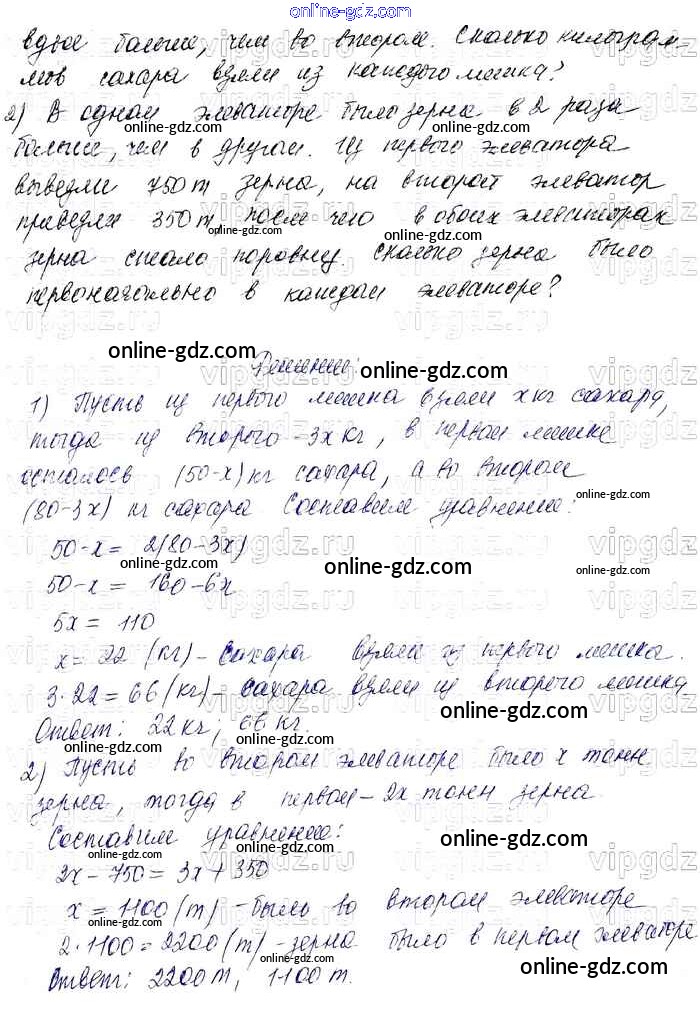 вдвое больше, чем во втором. Сколько килограм-
мов сахара взяли из каждого мешка?
2) В одном элеваторе было зерна в 2 раза
больше, чем в другом. Из первого элеватора
вывезли 750 т зерна, на второй элеватор
привезли 350 т, после чего в обоих элеваторах
зерна стало поровну. Сколько зерна было
первоначально в каждом элеваторе?
Решение:
1) Пусть из первого мешка взяли x кг сахара,
тогда из второго - 3x кг, в первом мешке
осталось (50-x) кг сахара, а во втором
(80-3x) кг сахара Составим уравнение:
50-x = 2(80-3x)
50-x = 160-6x
5x = 110
x = 22 (кг) - сахара взяли из первого мешка.
3·22 = 66 (кг) - сахара взяли из второго мешка
Ответ: 22 кг; 66 кг.
2) Пусть во втором элеваторе было x тонн
зерна, тогда в первом - 2x тонн зерна
Составим уравнение:
2x - 750 = 3x + 350
x = 1100 (т) - было во втором элеваторе
2·1100 = 2200 (т) - зерна было в первом элеваторе
Ответ: 2200 т, 1100 т.
online-gdz.com
vipgdz.ru